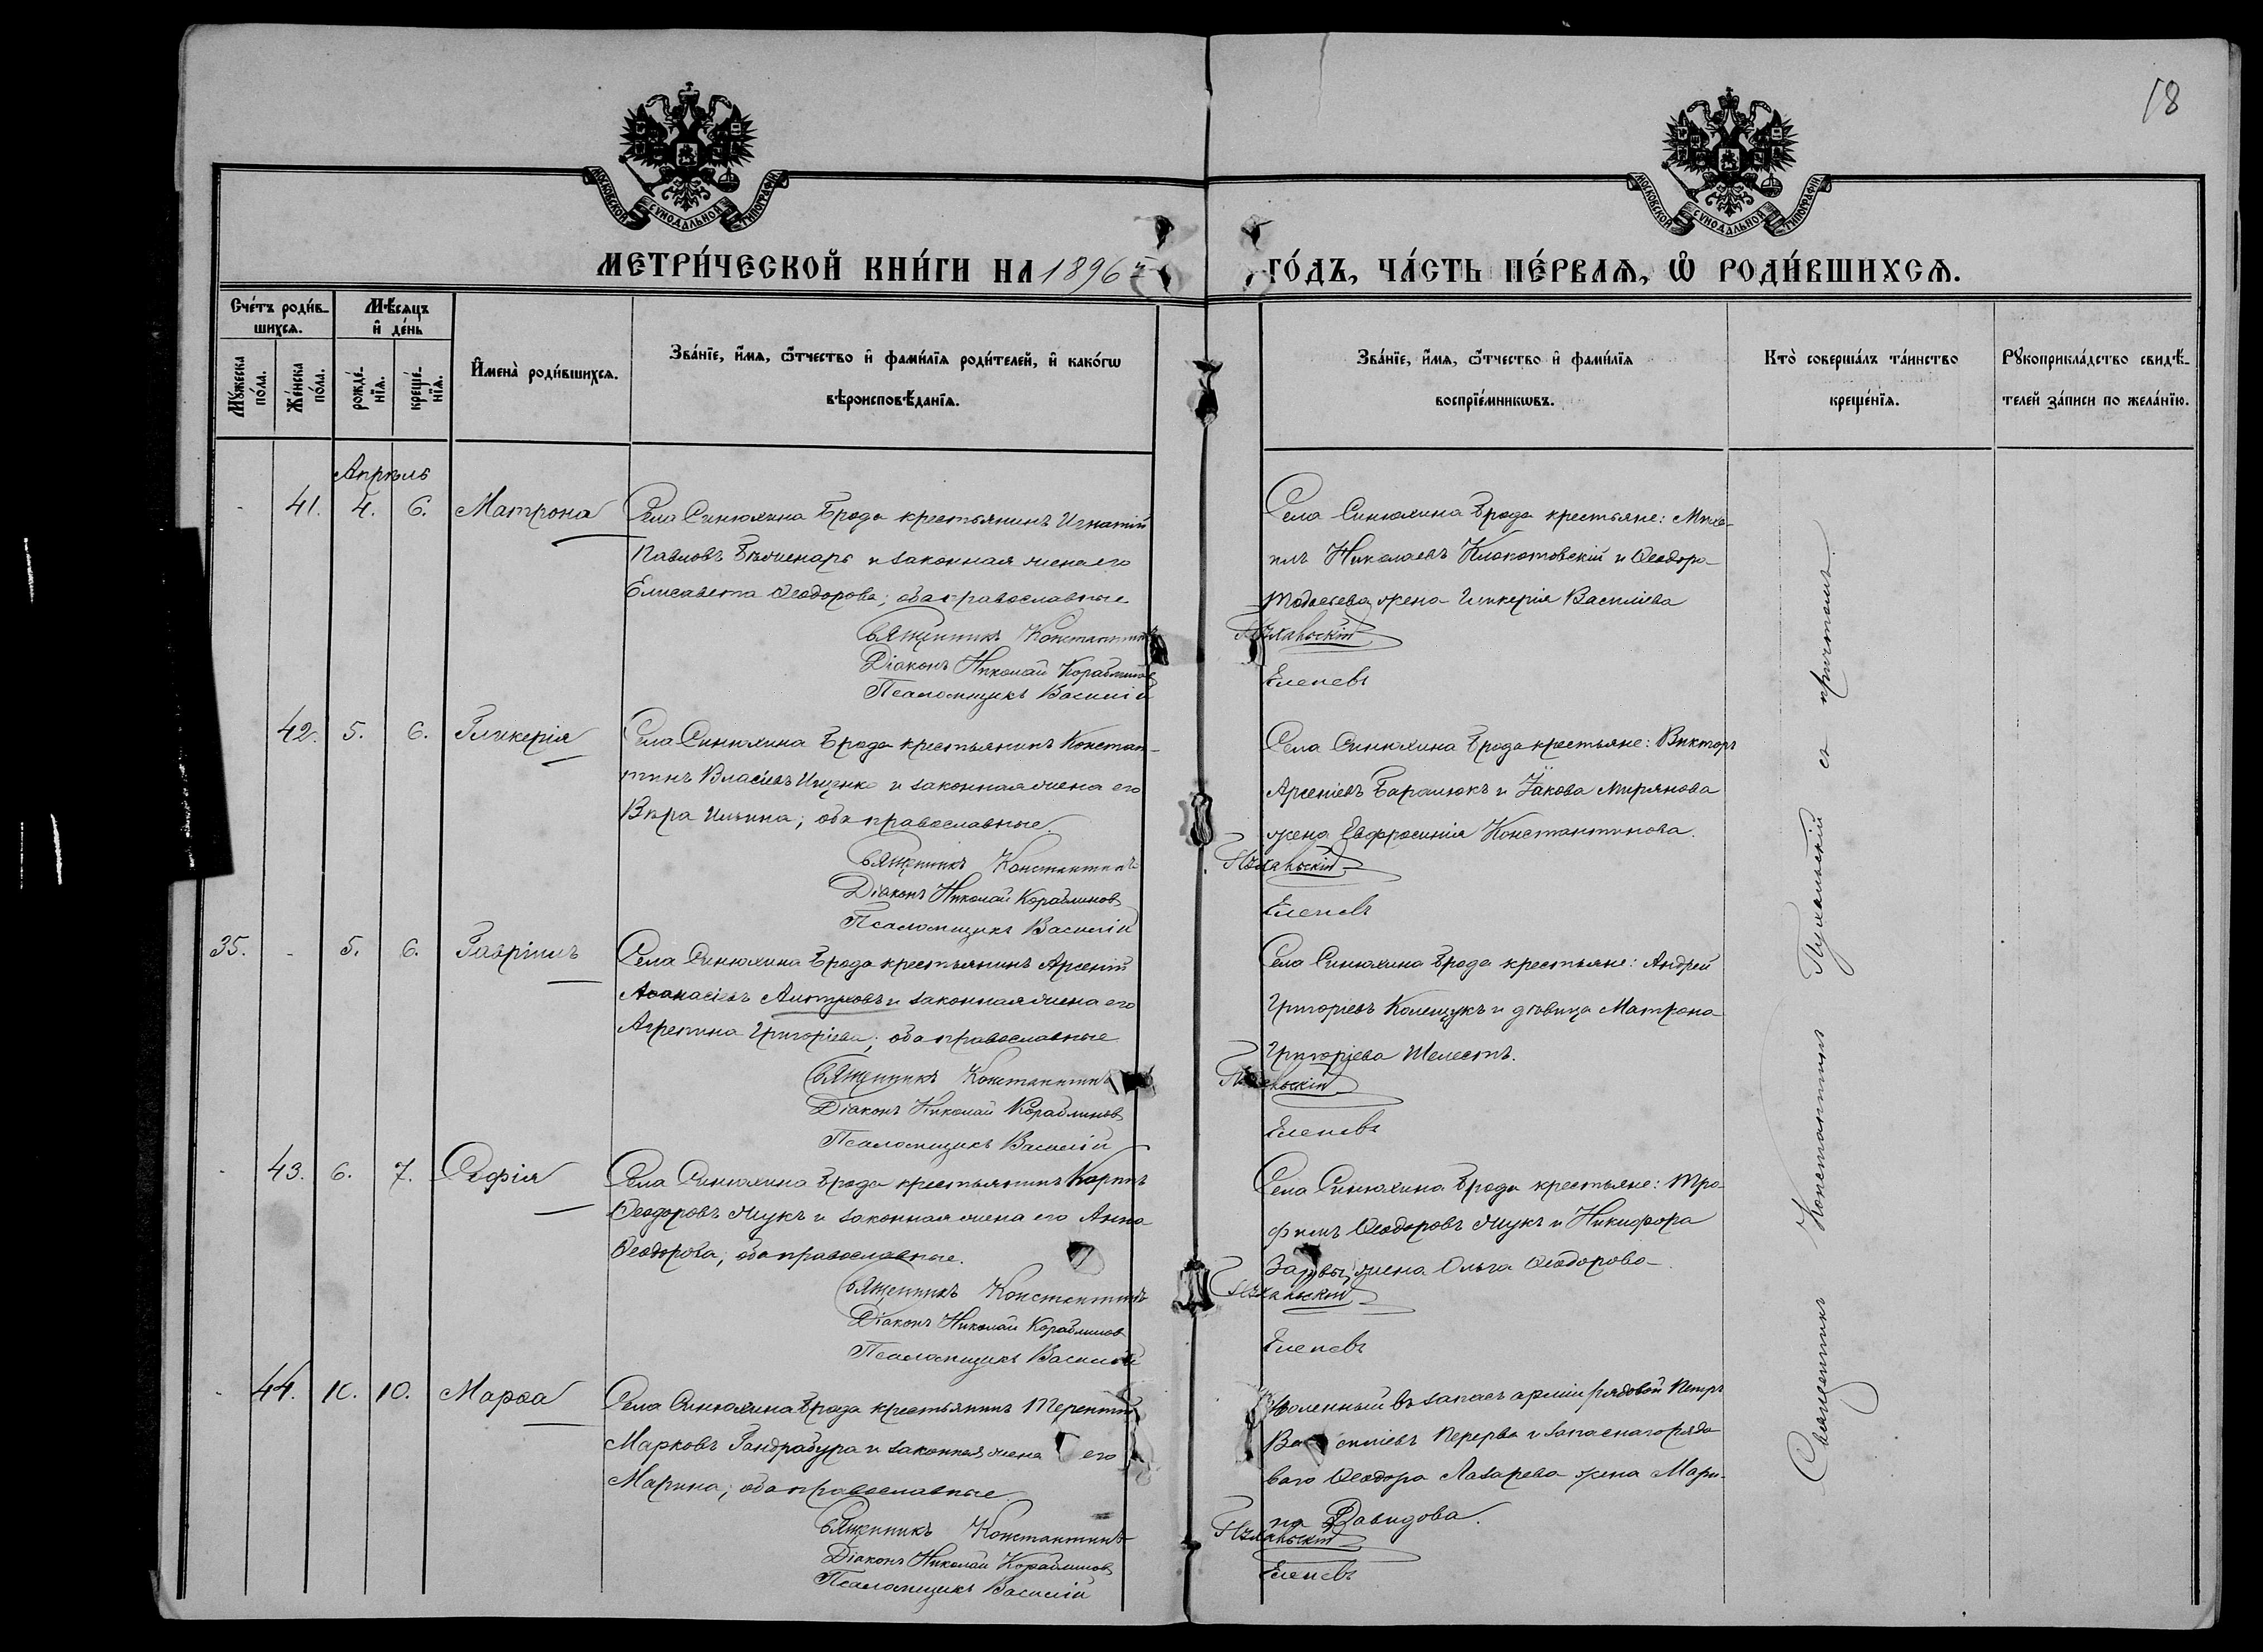 18
МОСКОВСКОЙ СУНОДАЛЬНОЙ ТИПОГРАФІИ
МОСКОВСКОЙ СУНОДАЛЬНОЙ ТИПОГРАФІИ
МЕТРИ́ЧЕСКОЙ КНИ́ГИ НА 1896й ГО́ДЪ, ЧА́СТЬ ПЕ́РВАѦ, Ѡ҆ РОДИ́ВШИХСѦ.
Сче́тъ роди́в-
шихсѧ.
Мꙋ́жеска
по́ла.
Же́нска
по́ла.
Мѣ́сѧцъ
и҆ де́нь
рожде́-
нїѧ.
креще́-
нїѧ.
И҆мена̀ роди́вшихсѧ.
Зва́нїе, и҆́мѧ, ѻ҆́тчество и҆ фами́лїѧ роди́телей, и҆ како́гѡ
вѣроисповѣ́данїѧ.
Зва́нїе, и҆́мѧ, ѻ҆́тчество и҆ фами́лїѧ
воспрїе́мникѡвъ.
Кто̀ соверша́лъ та́инство
креще́нїѧ.
Рꙋкоприкла́дство свидѣ́-
телей за́писи по жела́нїю.
Апрѣль
- 41. 4. 6. Матрона
Села Синюхина Брода крестьянинъ Игнатій
Павловъ и законная жена его
Елисавета Ѳеодорова; оба православные
Священникъ Константинъ Пухальскій
Діаконъ Николай Кораблинов
Псаломщикъ Василій Еленевъ
Села Синюхина Брода крестьяне: Миха-
илъ Николаевъ Клокотовскій и Ѳеодора
жена Гликерія Василіева
42. 5. 6. Гликерія
Села Синюхина Брода крестьянинъ Констан-
тинъ Власіевъ Ищенко и законная жена его
Вѣра Ильина; оба православные.
Священникъ Константинъ Пухальскій
Діаконъ Николай Кораблинов
Псаломщикъ Василій Еленевъ
Села Синюхина Брода крестьяне: Викторъ
Арсеніевъ Баралюкъ и Іакова Мирянова
жена Евфросинія Константинова.
35. - 5. 6. Гавріилъ
Села Синюхина Брода крестьянинъ Арсеній
Аѳанасіевъ и законная жена его
Агрепина Григоріева; оба православные
Священникъ Константинъ Пухальскій
Діаконъ Николай Кораблинов
Псаломщикъ Василій Еленевъ
Села Синюхина Брода крестьяне: Андрей
Григоріевъ Колещукъ и дѣвица Матрона
Григоріева Шелестъ.
- 43. 6. 7. Софія
Села Синюхина Брода крестьянинъ Карпъ
Ѳеодоровъ Жукъ и законная жена его Анна
Ѳеодорова; оба православные.
Священникъ Константинъ Пухальскій
Діаконъ Николай Кораблинов
Псаломщикъ Василій Еленевъ
Села Синюхина Брода крестьяне: Тро-
фимъ Ѳеодоровъ Жукъ и Никифора
жена Ольга Ѳеодорова
- 44. 10. 10. Марѳа
Села Синюхина Брода крестьянинъ Терентій
Марковъ Гандрабура и законная жена его
Марина; оба православные
Священникъ Константинъ Пухальскій
Діаконъ Николай Кораблинов
Псаломщикъ Василій Еленевъ
Уволенный въ запасъ арміи рядовой Петръ
Василіевъ Перерва и запаснаго рядо-
ваго Ѳеодора Лазарева жена Мари-
на Давидова.
Священникъ Константинъ Пухальскій съ причтомъ.